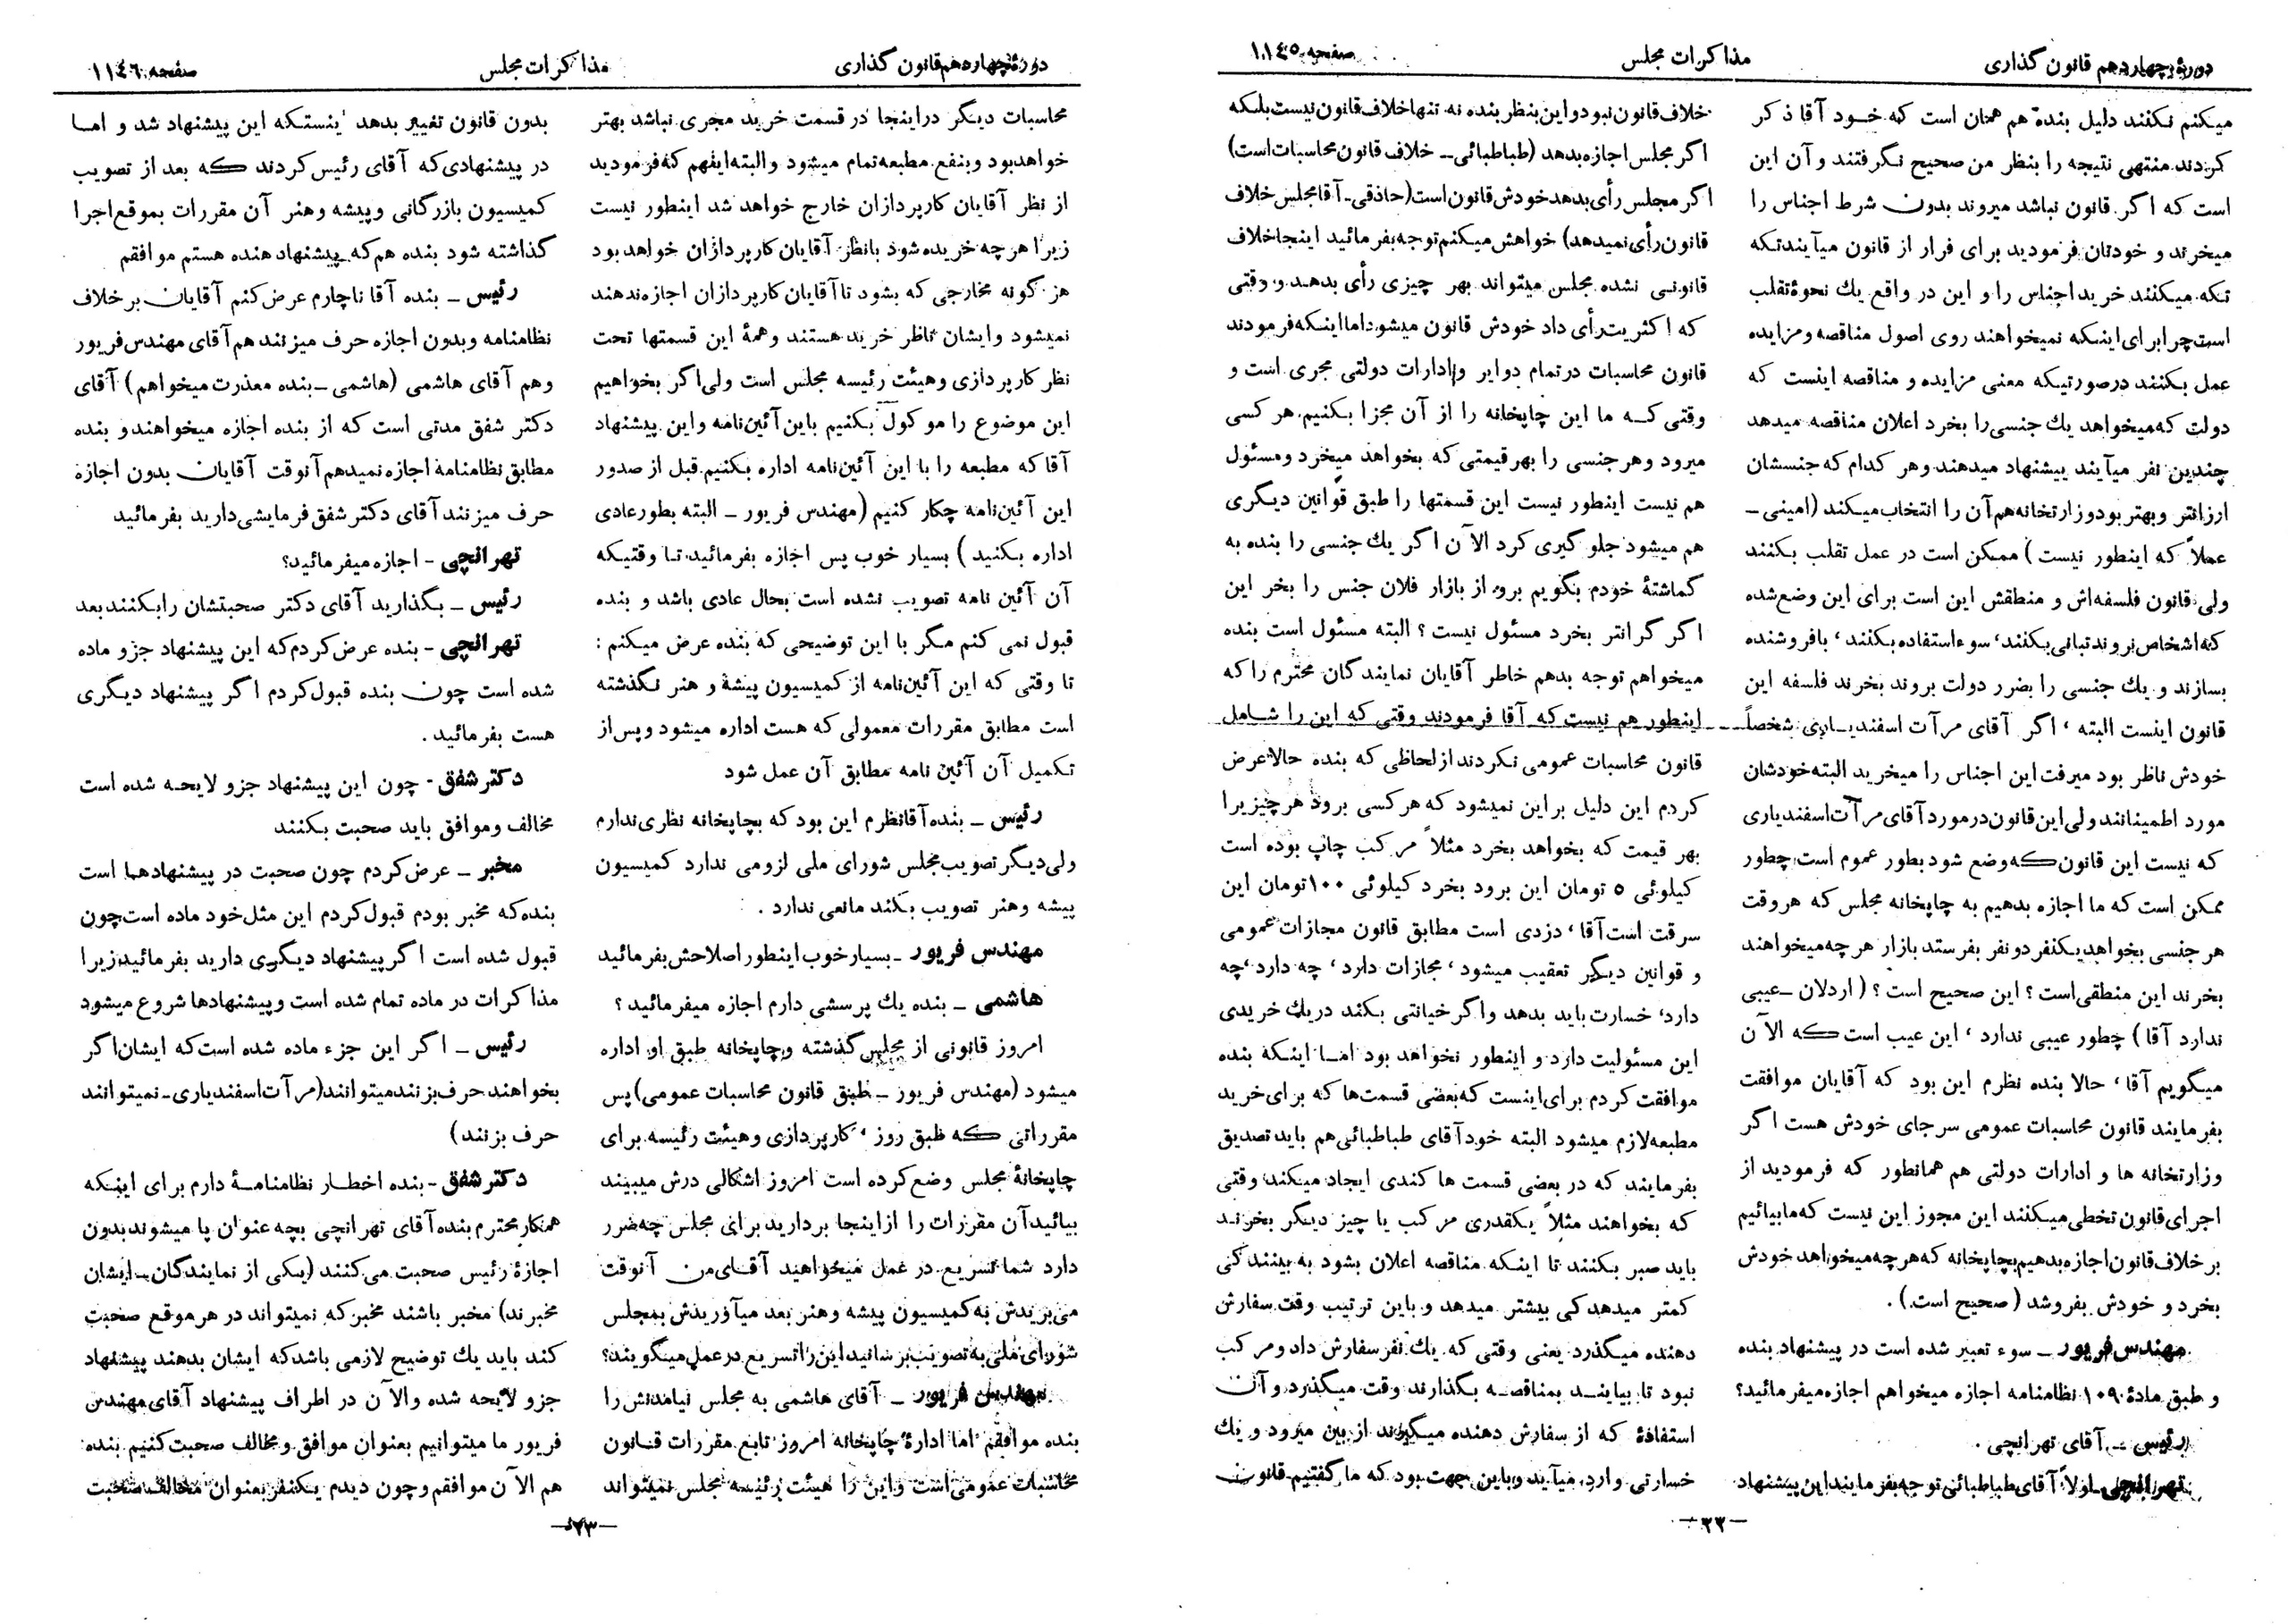 دورهٔ چهاردهم قانون گذاری
مذاکرات مجلس
صفحه ۱۱۴۵
میکنم نکنند دلیل بنده هم همان است که خود آقا ذکر
کردند منتهی نتیجه را بنظر من صحیح نگرفتند و آن این
است که اگر قانون نباشد میروند بدون شرط اجناس را
میخرند و خودتان فرمودید برای فرار از قانون میآیند تکه
تکه میکنند خرید اجناس را و این در واقع یك نحوهٔ تقلب
است چرا برای اینکه نمیخواهند روی اصول مناقصه و مزایده
عمل بکنند در صورتیکه معنی مزایده و مناقصه اینست که
دولت که میخواهد یك جنسی را بخرد اعلان مناقصه میدهد
چندین نفر میآیند پیشنهاد میدهند و هر کدام که جنسشان
ارزانتر و بهتر بود وزارتخانه هم آن را انتخاب میکند (امینی ــ
عملاً که اینطور نیست) ممکن است در عمل تقلب بکنند
ولی قانون فلسفه‌اش و منطقش این است برای این وضع شده
که اشخاص نروند تبانی بکنند، سوء استفاده بکنند، با فروشنده
بسازند و یك جنسی را بضرر دولت بروند بخرند فلسفه این
قانون اینست البته، اگر آقای مرآت اسفندیاری شخصاً
خودش ناظر بود میرفت این اجناس را میخرید البته خودشان
مورد اطمینانند ولی این قانون در مورد آقای مرآت اسفندیاری
که نیست این قانون که وضع شود بطور عموم است چطور
ممکن است که ما اجازه بدهیم به چاپخانه مجلس که هر وقت
هر جنسی بخواهد یکنفر دو نفر بفرستد بازار هر چه میخواهند
بخرند این منطقی است؟ این صحیح است؟ (اردلان ــ عیبی
ندارد آقا) چطور عیبی ندارد، این عیب است که الآن
میگویم آقا، حالا بنده نظرم این بود که آقایان موافقت
بفرمایند قانون محاسبات عمومی سر جای خودش هست اگر
وزارتخانه ها و ادارات دولتی هم همانطور که فرمودید از
اجرای قانون تخطی میکنند این مجوز این نیست که ما بیائیم
بر خلاف قانون اجازه بدهیم بچاپخانه که هر چه میخواهد خودش
بخرد و خودش بفروشد (صحیح است).
مهندس فریور ــ سوء تعبیر شده است در پیشنهاد بنده
و طبق مادهٔ ۱۰۹ نظامنامه اجازه میخواهم اجازه میفرمائید؟
رئیس ــ آقای تهرانچی.
تهرانچی ــ اولاً آقای طباطبائی توجه بفرمایند این پیشنهاد
خلاف قانون نبود و این بنظر بنده نه تنها خلاف قانون نیست بلکه
اگر مجلس اجازه بدهد (طباطبائی ــ خلاف قانون محاسبات است)
اگر مجلس رأی بدهد خودش قانون است (حاذقی ــ آقا مجلس خلاف
قانون رأی نمیدهد) خواهش میکنم توجه بفرمائید اینجا خلاف
قانونی نشده مجلس میتواند بهر چیزی رأی بدهد و وقتی
که اکثریت رأی داد خودش قانون میشود اما اینکه فرمودند
قانون محاسبات در تمام دوایر و ادارات دولتی مجری است و
وقتی که ما این چاپخانه را از آن مجزا بکنیم هر کسی
میرود و هر جنسی را بهر قیمتی که بخواهد میخرد و مسئول
هم نیست اینطور نیست این قسمتها را طبق قوانین دیگری
هم میشود جلو گیری کرد الآن اگر یك جنسی را بنده به
گماشتهٔ خودم بگویم برو از بازار فلان جنس را بخر این
اگر گرانتر بخرد مسئول نیست؟ البته مسئول است بنده
میخواهم توجه بدهم خاطر آقایان نمایندگان محترم را که
اینطور هم نیست که آقا فرمودند وقتی که این را شامل
قانون محاسبات عمومی نکردند از لحاظی که بنده حالا عرض
کردم این دلیل بر این نمیشود که هر کسی برود هر چیزیرا
بهر قیمت که بخواهد بخرد مثلاً مرکب چاپ بوده است
کیلوئی ۵ تومان این برود بخرد کیلوئی ۱۰۰ تومان این
سرقت است آقا، دزدی است مطابق قانون مجازات عمومی
و قوانین دیگر تعقیب میشود، مجازات دارد، چه دارد، چه
دارد، خسارت باید بدهد و اگر خیانتی بکند در یك خریدی
این مسئولیت دارد و اینطور نخواهد بود اما اینکه بنده
موافقت کردم برای اینست که بعضی قسمت‌ها که برای خرید
مطبعه لازم میشود البته خود آقای طباطبائی هم باید تصدیق
بفرمایند که در بعضی قسمت ها کندی ایجاد میکند وقتی
که بخواهند مثلاً یکقدری مرکب یا چیز دیگر بخرند
باید صبر بکنند تا اینکه مناقصه اعلان بشود به بینند کی
کمتر میدهد کی بیشتر میدهد و باین ترتیب وقت سفارش
دهنده میگذرد یعنی وقتی که یك نفر سفارش داد و مرکب
نبود تا بیایند بمناقصه بگذارند وقت میگذرد و آن
استفادهٔ که از سفارش دهنده میگیرند از بین میرود و یك
خسارتی وارد میآید و باین جهت بود که ما گفتیم قانون
ــ ۲۲ ــ
دورهٔ چهاردهم قانون گذاری
مذاکرات مجلس
صفحه ۱۱۴۶
محاسبات دیگر در اینجا در قسمت خرید مجری نباشد بهتر
خواهد بود و بنفع مطبعه تمام میشود و البته اینهم که فرمودید
از نظر آقایان کارپردازان خارج خواهد شد اینطور نیست
زیرا هر چه خریده شود بانظر آقایان کارپردازان خواهد بود
هر گونه مخارجی که بشود تا آقایان کارپردازان اجازه ندهند
نمیشود و ایشان ناظر خرید هستند و همهٔ این قسمتها تحت
نظر کارپردازی و هیئت رئیسه مجلس است ولی اگر بخواهیم
این موضوع را موکول بکنیم باین آئین‌نامه و این پیشنهاد
آقا که مطبعه را با این آئین‌نامه اداره بکنیم قبل از صدور
این آئین‌نامه چکار کنیم (مهندس فریور ــ البته بطور عادی
اداره بکنید) بسیار خوب پس اجازه بفرمائید تا وقتیکه
آن آئین نامه تصویب نشده است بحال عادی باشد و بنده
قبول نمی کنم مگر با این توضیحی که بنده عرض میکنم:
تا وقتی که این آئین‌نامه از کمیسیون پیشه و هنر نگذشته
است مطابق مقررات معمولی که هست اداره میشود و پس از
تکمیل آن آئین نامه مطابق آن عمل شود
رئیس ــ بنده آقا نظرم این بود که بچاپخانه نظری ندارم
ولی دیگر تصویب مجلس شورای ملی لزومی ندارد کمیسیون
پیشه و هنر تصویب بکند مانعی ندارد.
مهندس فریور ــ بسیار خوب اینطور اصلاحش بفرمائید
هاشمی ــ بنده یك پرسشی دارم اجازه میفرمائید؟
امروز قانونی از مجلس گذشته و چاپخانه طبق او اداره
میشود (مهندس فریور ــ طبق قانون محاسبات عمومی) پس
مقرراتی که طبق روز، کارپردازی و هیئت رئیسه برای
چاپخانهٔ مجلس وضع کرده است امروز اشکالی درش میبینند
بیائید آن مقررات را از اینجا بردارید برای مجلس چه ضرر
دارد شما تسریع در عمل میخواهید آقای من آنوقت
می‌بریدش به کمیسیون پیشه و هنر بعد میآوریدش بمجلس
شورای ملی به تصویب برسانید این را تسریع در عمل میگویند؟
مهندس فریور ــ آقای هاشمی به مجلس نیامدنش را
بنده موافقم اما ادارهٔ چاپخانه امروز تابع مقررات قانون
محاسبات عمومی است و این را هیئت رئیسه مجلس نمیتواند
بدون قانون تغییر بدهد اینستکه این پیشنهاد شد و اما
در پیشنهادی که آقای رئیس کردند که بعد از تصویب
کمیسیون بازرگانی و پیشه و هنر آن مقررات بموقع اجرا
گذاشته شود بنده هم که پیشنهاد دهنده هستم موافقم
رئیس ــ بنده آقا ناچارم عرض کنم آقایان بر خلاف
نظامنامه و بدون اجازه حرف میزنند هم آقای مهندس فریور
و هم آقای هاشمی (هاشمی ــ بنده معذرت میخواهم) آقای
دکتر شفق مدتی است که از بنده اجازه میخواهند و بنده
مطابق نظامنامه اجازه نمیدهم آنوقت آقایان بدون اجازه
حرف میزنند آقای دکتر شفق فرمایشی دارید بفرمائید
تهرانچی - اجازه میفرمائید؟
رئیس ــ بگذارید آقای دکتر صحبتشان را بکنند بعد
تهرانچی - بنده عرض کردم که این پیشنهاد جزو ماده
شده است چون بنده قبول کردم اگر پیشنهاد دیگری
هست بفرمائید.
دکتر شفق - چون این پیشنهاد جزو لایحه شده است
مخالف و موافق باید صحبت بکنند
مخبر ــ عرض کردم چون صحبت در پیشنهادها است
بنده که مخبر بودم قبول کردم این مثل خود ماده است چون
قبول شده است اگر پیشنهاد دیگری دارید بفرمائید زیرا
مذاکرات در ماده تمام شده است و پیشنهادها شروع میشود
رئیس ــ اگر این جزء ماده شده است که ایشان اگر
بخواهند حرف بزنند میتوانند (مرآت اسفندیاری ــ نمیتوانند
حرف بزنند)
دکتر شفق - بنده اخطار نظامنامهٔ دارم برای اینکه
همکار محترم بنده آقای تهرانچی بچه عنوان پا میشوند بدون
اجازهٔ رئیس صحبت می‌کنند (یکی از نمایندگان ــ ایشان
مخبرند) مخبر باشند مخبر که نمیتواند در هر موقع صحبت
کند باید یك توضیح لازمی باشد که ایشان بدهند پیشنهاد
جزو لایحه شده و الآن در اطراف پیشنهاد آقای مهندس
فریور ما میتوانیم بعنوان موافق و مخالف صحبت کنیم بنده
هم الآن موافقم و چون دیدم یکنفر بعنوان مخالف صحبت
ــ ۲۳ ــ